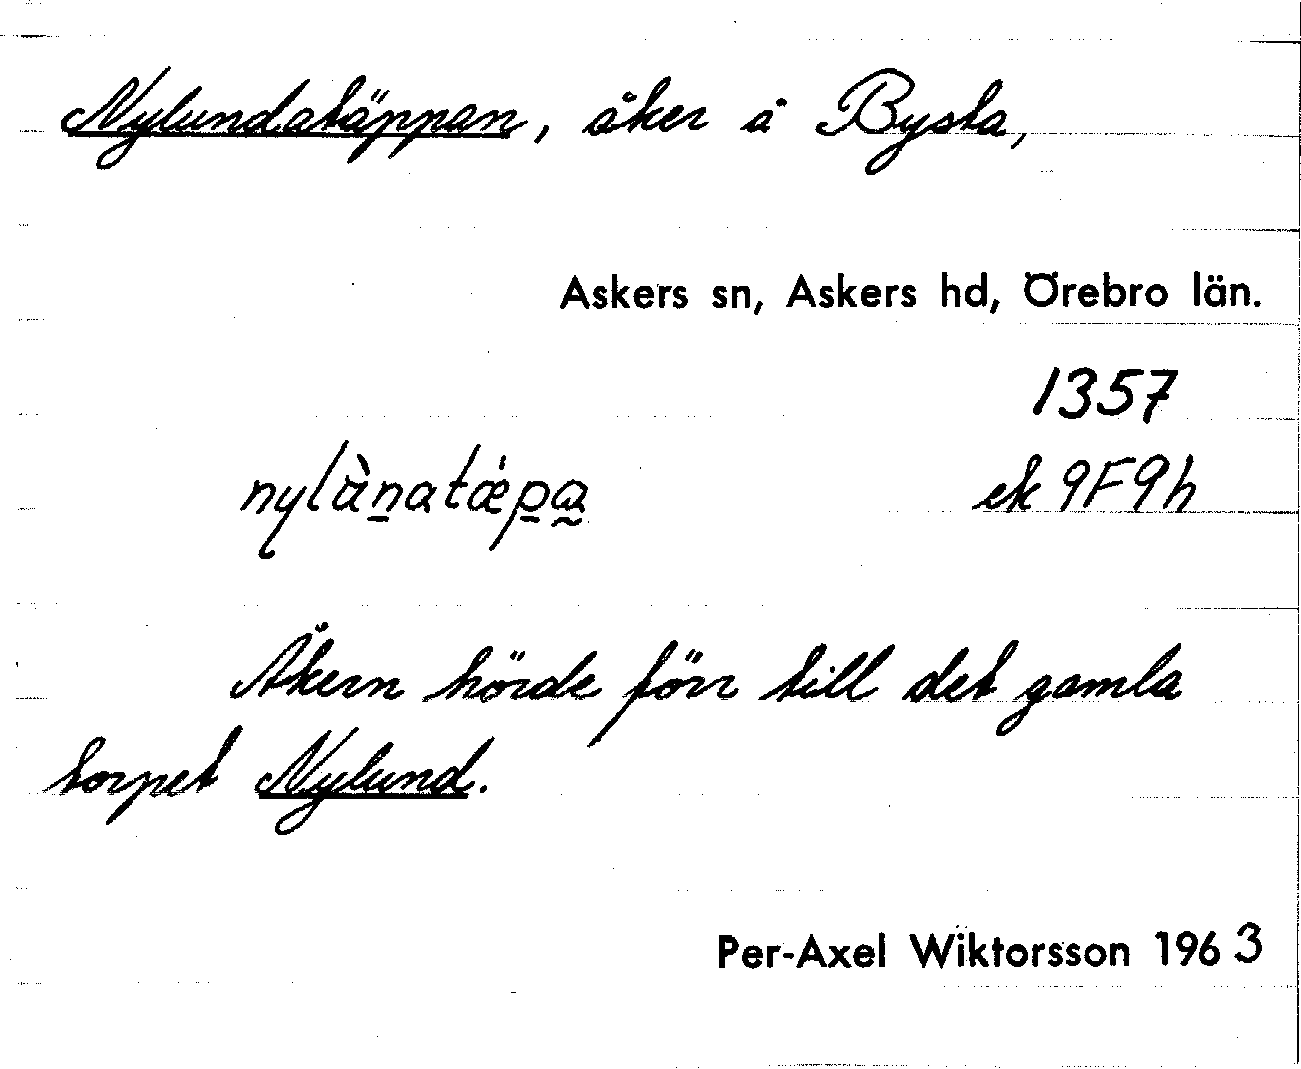 Nylundatäppan, åker å Bysta,
Askers sn, Askers hd, Örebro län.
1357
nylànatǽpa ek 9F9h
Åkern hörde förr till det gamla
torpet Nylund.
Per-Axel Wiktorsson 1963